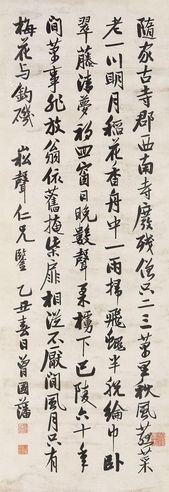 隨家古寺郡西南寺廢殘僧只二三萬里秋風菰菜
老一川明月稻花香舟中一雨掃飛蠅半脫綸巾臥
翠藤清夢初回窗日晚數聲柔櫓下巴陵六十年
間萬事非放翁依舊掩柴扉相從不厭閒風月只有
梅花与釣磯 崧聲仁兄鑒 乙丑春日曾國藩